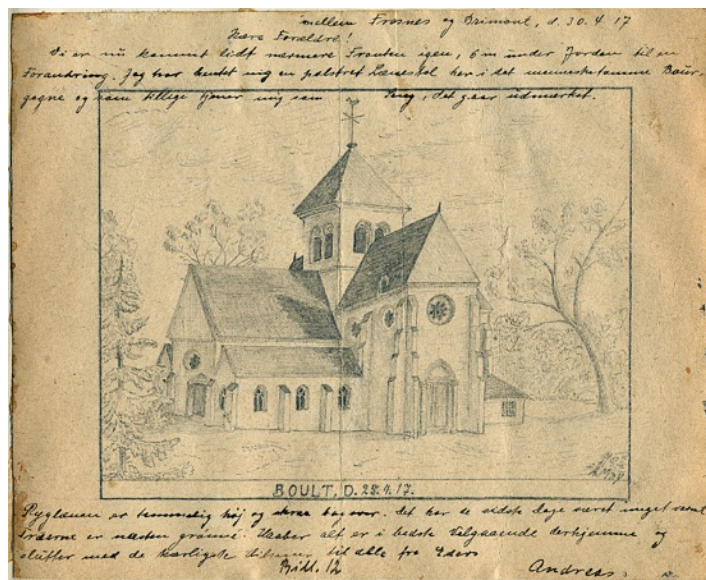 mellem Fresnes og Brimont, d. 30.4.17
Kære Forældre!
Vi er nu kommet lidt nærmere Fronten igen, 6 m under Jorden til en
Forandring. Jeg har hentet mig en polstret Lænestol her i det mennesketomme Bour-
gogne og som tillige tjener mig som Seng, det gaar udmærket.
BOULT, D. 28.4.17.
Ryglænen er temmelig høj og skraa bagover. Det har de sidste Dage været meget varmt
Træerne er næsten grønne. Haaber alt er i bedste Velgaaende derhjemme og
slutter med de kærligste Hilsener til alle fra Eders
Bill. 12
Andreas.